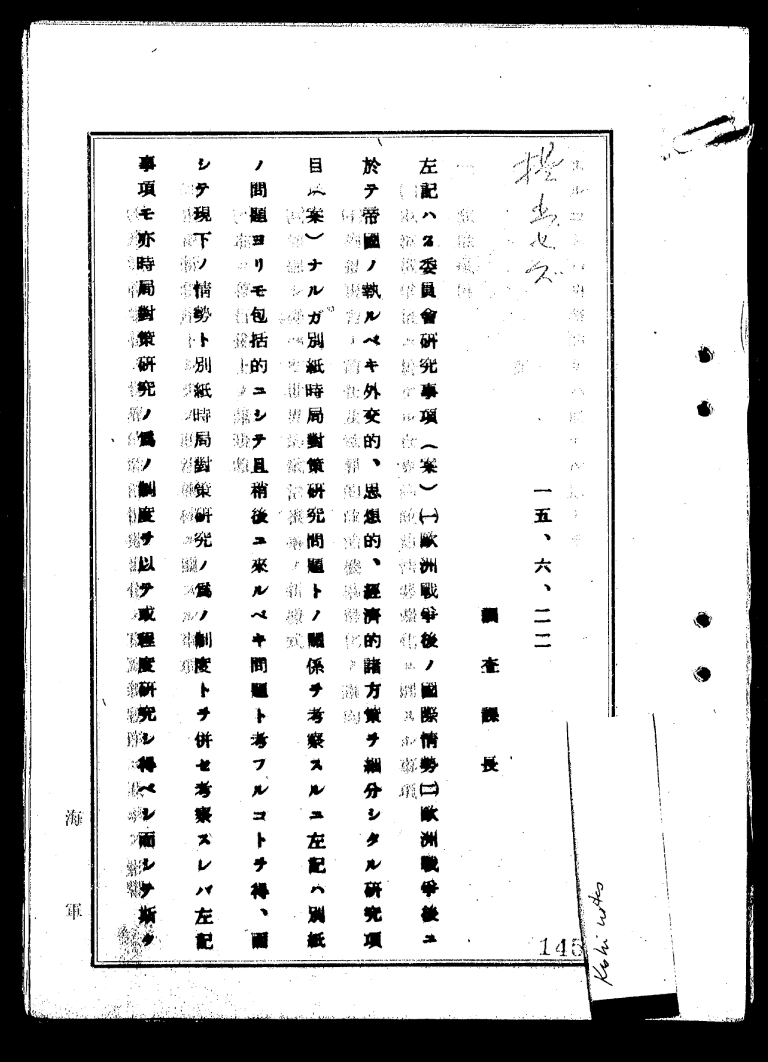 提出セズ
一五、六、二二
調査課長
左記ハス委員會研究事項（案）㈠歐洲戰爭後ノ國際情勢㈡歐洲戰爭後ニ
於テ帝國ノ執ルベキ外交的、思想的、經濟的諸方策ヲ細分シタル研究項
目（案）ナルガ別紙時局對策研究問題トノ關係ヲ考察スルニ左記ハ別紙
ノ問題ヨリモ包括的ニシテ且稍後ニ來ルベキ問題ト考フルコトヲ得、而
シテ現下ノ情勢ト別紙時局對策研究ノ爲ノ制度トヲ併セ考察スレバ左記
事項モ亦時局對策研究ノ爲ノ制度ヲ以テ或程度研究シ得ベシ而シテ斯ク
海軍
145